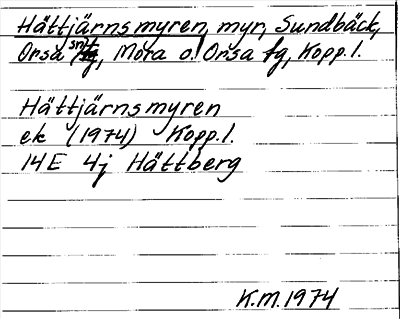 Hättjärnsmyren, myr, Sundbäck,
Orsa snt, Mora o. Orsa fg, Kopp. l.
Hättjärnsmyren
ek (1974) Kopp. l.
14E 4j Hättberg
K.M. 1974